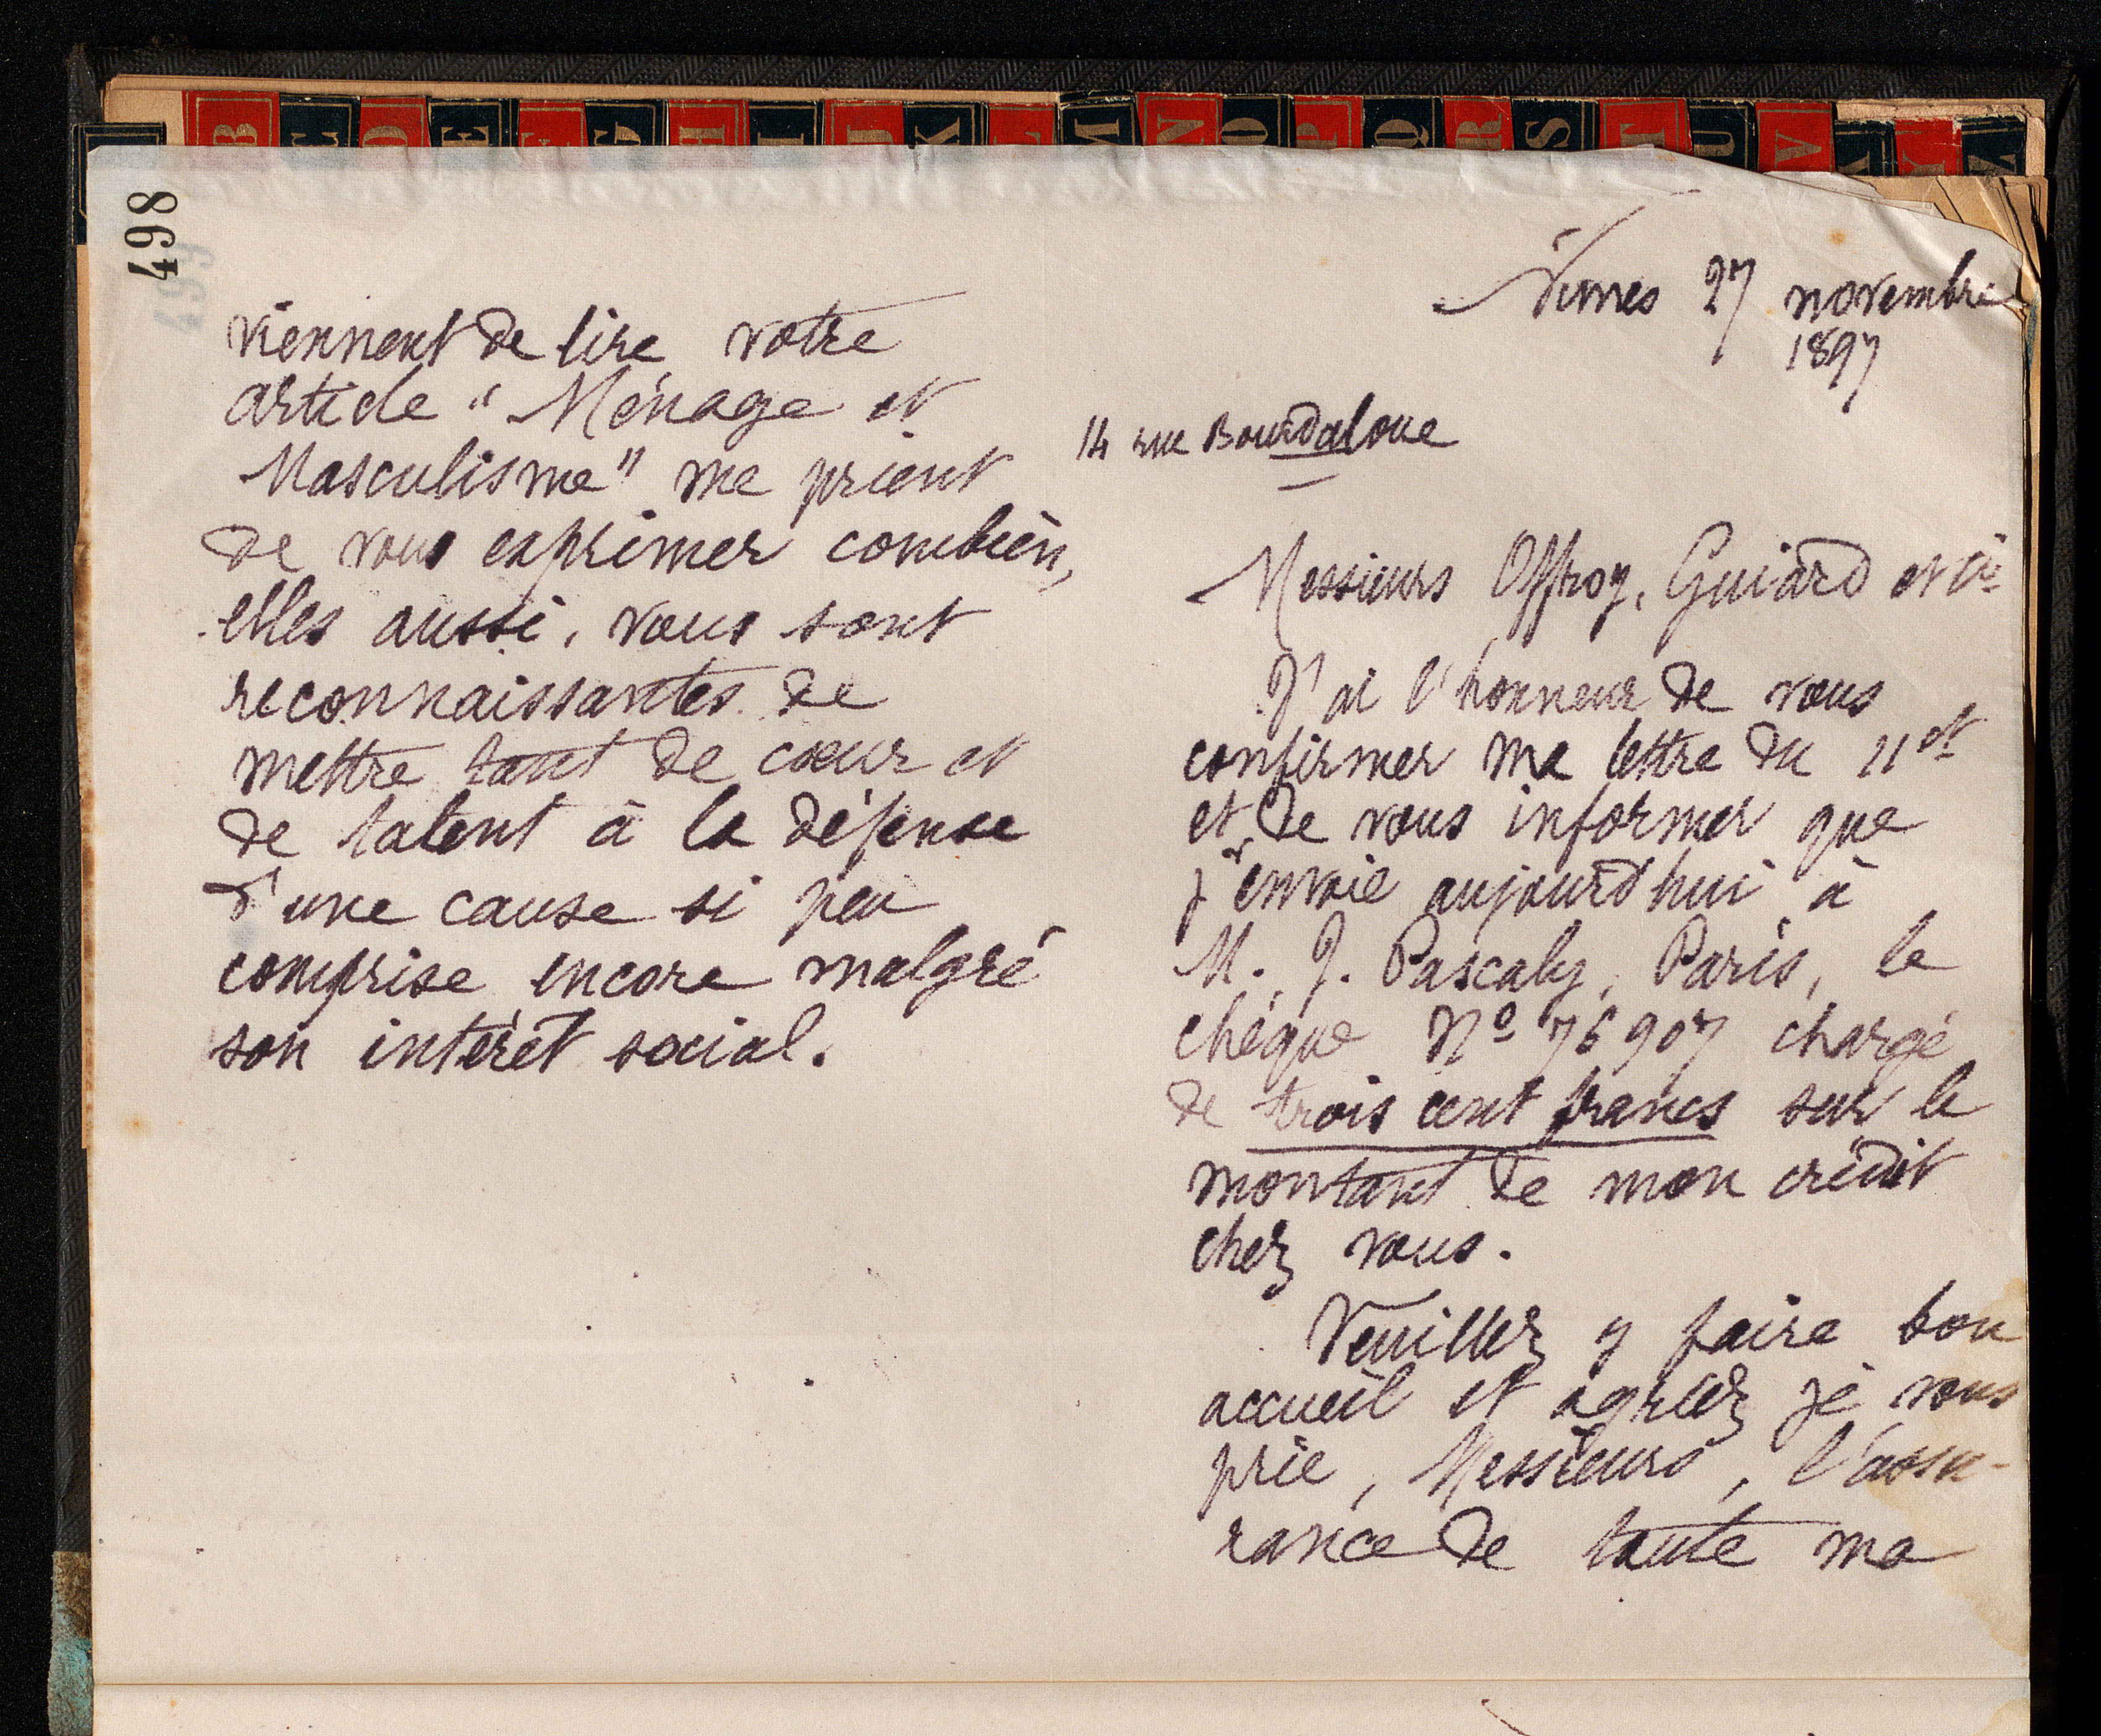 B C D E F G H I J K L M N O P Q R S T U V
498
viennent de lire votre
article "Ménage et
Masculisme" me prient
de vous exprimer combien,
elles aussi, vous sont
reconnaissantes de
mettre tant de cœur et
de talent à la défense
d'une cause si peu
comprise encore malgré
son intérêt social.
Nimes 27 novembre
1897
14 rue Bourdaloue
Messieurs Offroy, Guiard et Cie
J'ai l'honneur de vous
confirmer ma lettre du 11 ct
et de vous informer que
j'envoie aujourd'hui à
M. J. Pascaly, Paris, le
chèque No 76907 chargé
de trois cent francs sur le
montant de mon crédit
chez vous.
Veuillez y faire bon
accueil et agréez je vous
prie, Messieurs, l'assu-
rance de toute ma